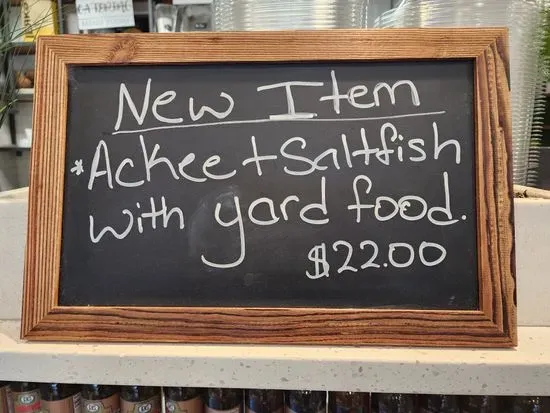 CATERING
New Item
*Ackee + Saltfish
with yard food.
$22.00
DG